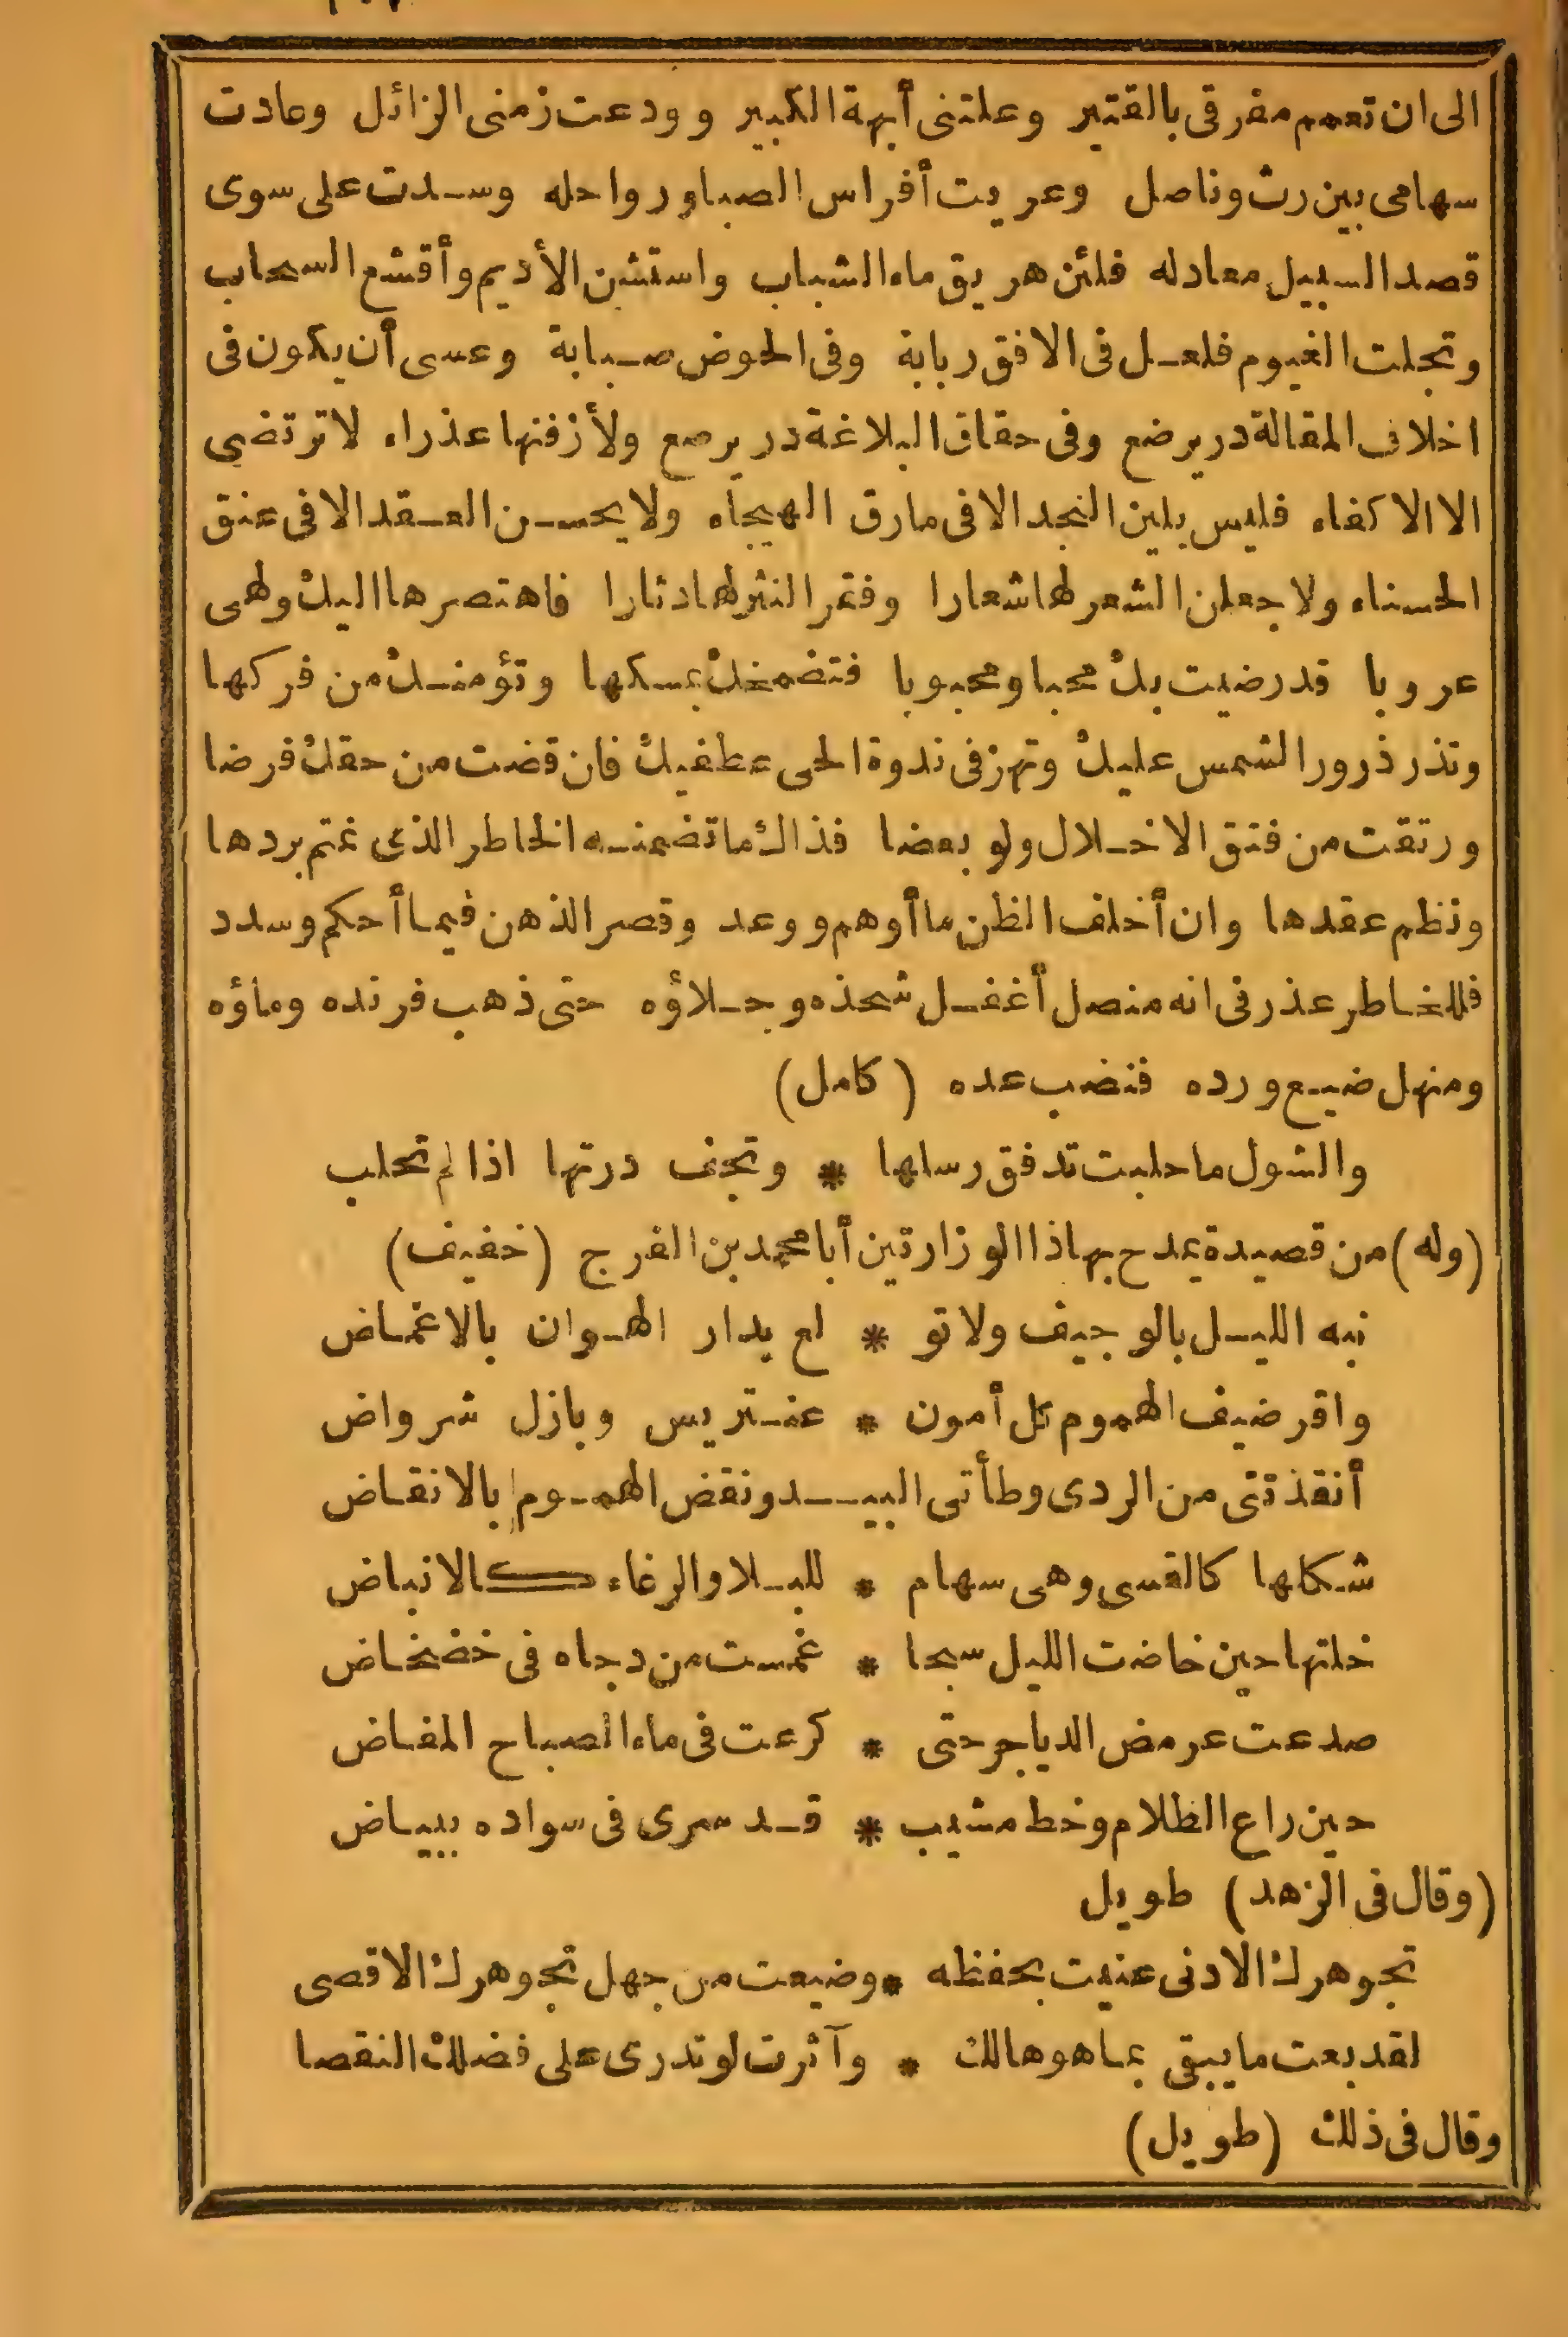 الى ان تعمم مفرقى بالقتير وعلتنى أبهة الكبير وودعت زمنى الزائل وعادت
سهامى بين رث وناصل وعريت أفراس الصبا ورواحله وسدت على سوى
قصد السبيل معادله فلئن هريق ماء الشباب واستشن الأديم وأقشع السحاب
وتجلت الغيوم فلعل فى الافق ربابة وفى الحوض صبابة وعسى أن يكون فى
اخلاف المقالة در يرضع وفى حقاق البلاغة در يرصع ولأزفنها عذراء لا ترتضى
الا الا كفاء فليس يلين النجد الا فى مارق الهيجاء ولا يحسن العقد الا فى عنق
الحسناء ولا جعلن الشعر لها شعارا وفقر النثر لها دثارا فاهتصرها اليك وهى
عروبا قد رضيت بك محبا ومحبوبا فتضمخك بمسكها وتؤمنك من فركها
وتذر ذرور الشمس عليك وتهز فى ندوة الحى عطفيك فان قضت من حقك فرضا
ورتقت من فتق الاخلال ولو بعضا فذاك ما تضمنه الخاطر الذى غتم بردها
ونظم عقدها وان أخلف الظن ما أوهم ووعد وقصر الذهن فيما أحكم وسدد
فللخاطر عذر فى انه منصل أغفل شحذه وجلاؤه حتى ذهب فرنده وماؤه
ومنهل ضيع ورده فنضب عده (كامل)
والشول ما حلبت تدفق رسلها * وتجف درتها اذا لم تحلب
(وله) من قصيدة يمدح بها ذا الوزارتين أبا محمد بن الفرج (خفيف)
نبه الليل بالوجيف ولا تو * لع بدار الهوان بالاغماض
واقر ضيف الهموم كل أمون * عنتريس وبازل شرواض
أنقذتنى من الردى وطأتى البيد ونقض الهموم بالانقاض
شكلها كالقسى وهى سهام * للبلا والرغاء كالانباض
خلتها حين خاضت الليل سبحا * غمست من دجاه فى خضخاض
صدعت عرمض الدياجر حتى * كرعت فى ماء الصباح المفاض
حين راع الظلام وخط مشيب * قد سرى فى سواده ببياض
(وقال فى الزهد) طويل
تجوهرك الادنى عنيت بحفظه * وضيعت من جهل تجوهرك الاقصى
لقد بعت ما يبقى بما هو هالك * وآثرت لو تدرى على فضلك النقصا
وقال فى ذلك (طويل)